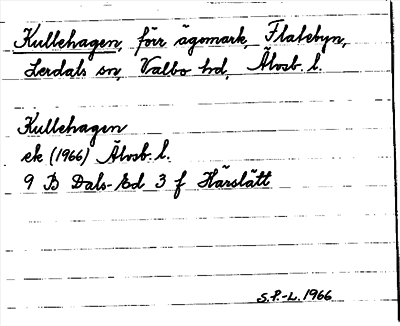 Kullehagen, förr ägomark, Flatebyn,
Lerdals sn, Valbo hd, Älvsb. l.
Kullehagen
ek (1966) Älvsb. l.
9 B Dals-Ed 3 f Hårslätt
S.P.-L. 1966